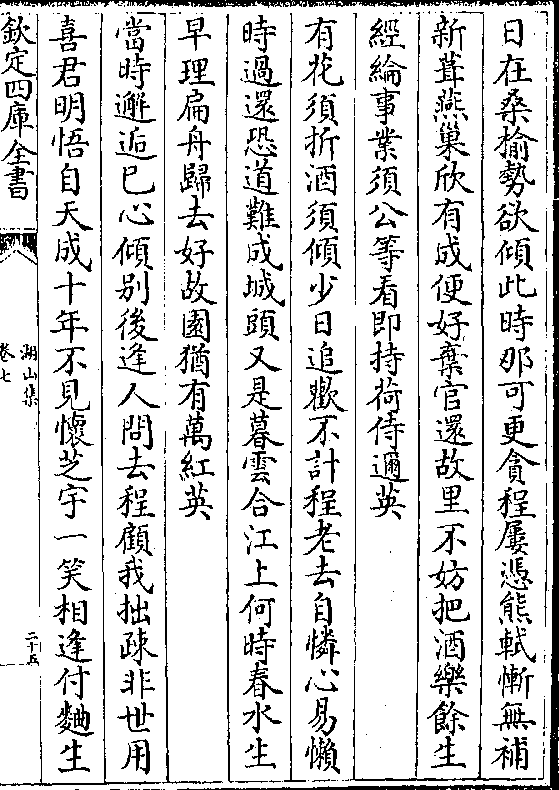 日在桑榆勢欲傾此時那可更貪程屢憑熊軾慚無補
新葺燕巢欣有成便好棄官還故里不妨把酒樂餘生
經綸事業須公等看即持荷侍邇英
有花須折酒須傾少日追歡不計程老去自憐心易懶
時過還恐道難成城頭又是暮雲合江上何時春水生
早理扁舟歸去好故園猶有萬紅英
當時邂逅已心傾別後逢人問去程顧我拙疎非世用
喜君明悟自天成十年不見懷芝宇一笑相逢付麯生
欽定四庫全書
湖山集
卷七
二十五